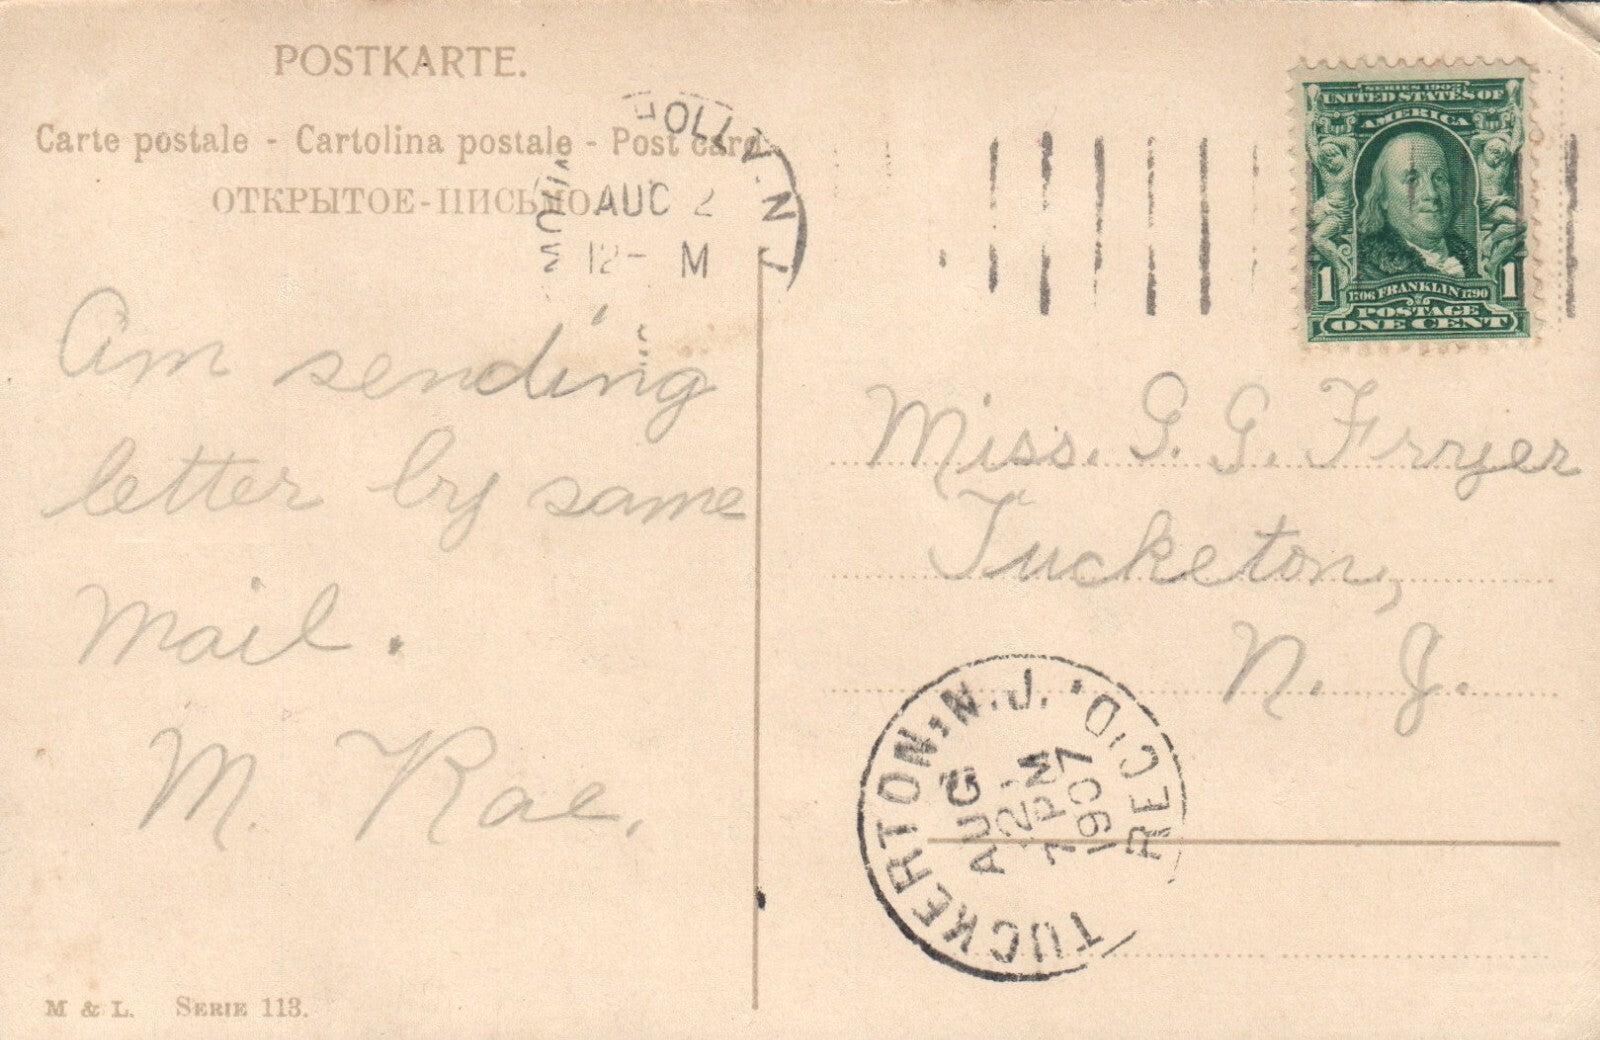 POSTKARTE.
Carte postale - Cartolina postale - Post card.
ОТКРЫТОЕ-ПИСЬМО.
HOLLY. N.J
AUG 2
12- M
SERIES 1902
UNITED STATES OF
AMERICA
1 1
1706 FRANKLIN 1790
POSTAGE
ONE CENT
Am sending
letter by same
mail.
M. Rae.
Miss. G. G. Fryer
Tucketon,
N. J.
TUCKERTON, N.J. REC'D.
AUG
2
7 PM
1907
M & L. SERIE 113.